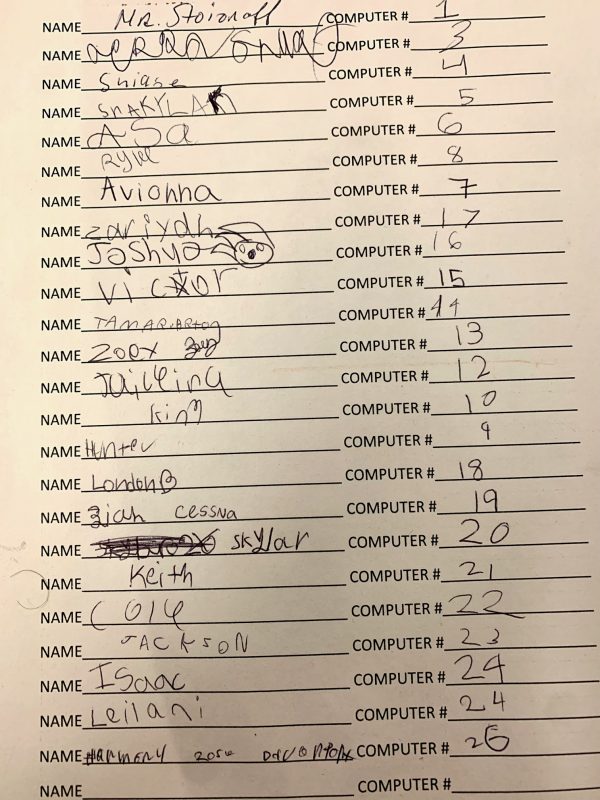 NAME MR. Stoianoff COMPUTER # 1
NAME COMPUTER # 3
NAME COMPUTER # 4
NAME SHAKYLAH COMPUTER # 5
NAME ASa COMPUTER # 6
NAME RYlee COMPUTER # 8
NAME Avionna COMPUTER # 7
NAME zariyah COMPUTER # 17
NAME Joshua COMPUTER # 16
NAME Victor COMPUTER # 15
NAME COMPUTER # 14
NAME Zoey COMPUTER # 13
NAME COMPUTER # 12
NAME king COMPUTER # 10
NAME Hunter COMPUTER # 9
NAME London B COMPUTER # 18
NAME ziah cessna COMPUTER # 19
NAME skylar COMPUTER # 20
NAME Keith COMPUTER # 21
NAME COLE COMPUTER # 22
NAME JACKSON COMPUTER # 23
NAME ISaac COMPUTER # 24
NAME Leilani COMPUTER # 24
NAME HARMENY COMPUTER # 26
NAME COMPUTER #